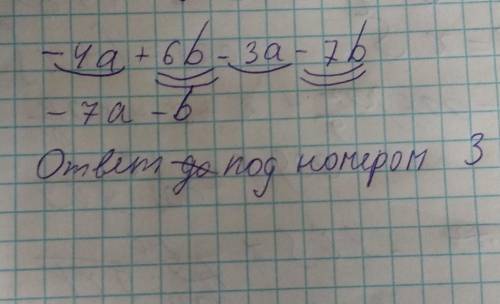 -4a + 6b - 3a - 7b
-7a - b
Ответ под номером 3